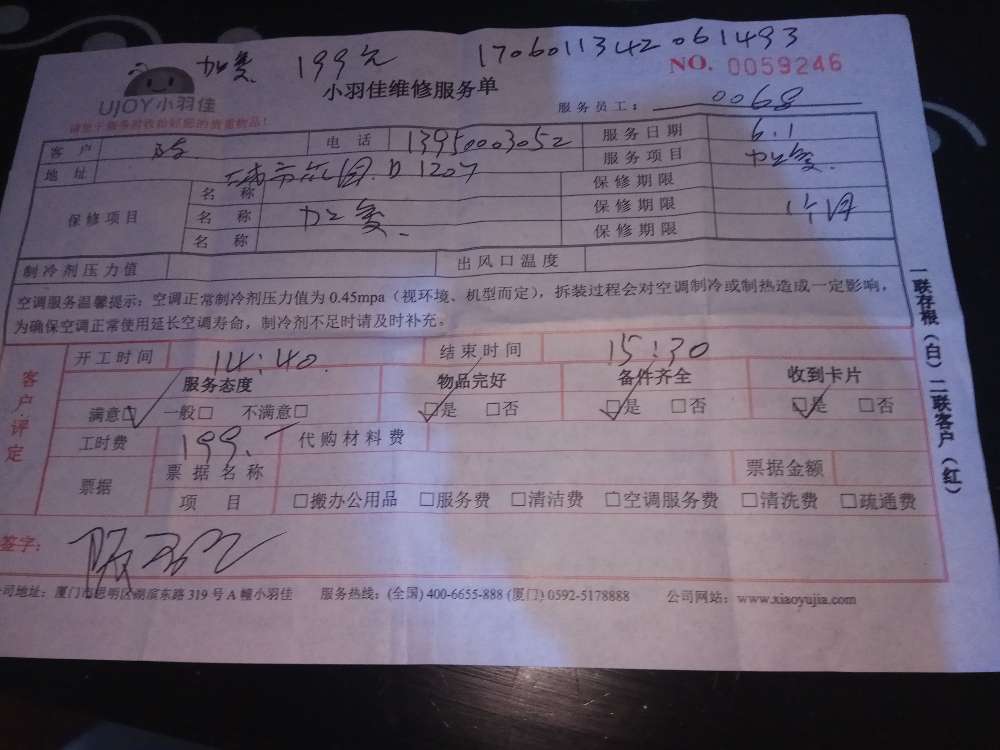 加氟 199元 1706011342061493
NO. 0059246
UJOY小羽佳
小羽佳维修服务单
服务员工: 0068
客户 陈 电话 13950003052 服务日期 6.1
地址 城市花园 D 1207 服务项目 加氟
保修项目 名称 保修期限
名称 加氟 保修期限 1个月
名称 保修期限
制冷剂压力值 出风口温度
空调服务温馨提示: 空调正常制冷剂压力值为 0.45mpa (视环境、机型而定), 拆装过程会对空调制冷或制热造成一定影响,
为确保空调正常使用延长空调寿命, 制冷剂不足时请及时补充。
一联存根(白) 二联客户(红)
客户评定
开工时间 14:40 结束时间 15:30
服务态度 物品完好 备件齐全 收到卡片
满意□ 一般□ 不满意□ □是 □否 □是 □否 □是 □否
工时费 199. 代购材料费
票据 票据名称 票据金额
项目 □搬办公用品 □服务费 □清洁费 □空调服务费 □清洗费 □疏通费
签字:
司地址: 厦门市思明区湖滨东路 319 号 A 幢小羽佳 服务热线: (全国) 400-6655-888 (厦门) 0592-5178888 公司网站: www.xiaoyujia.com